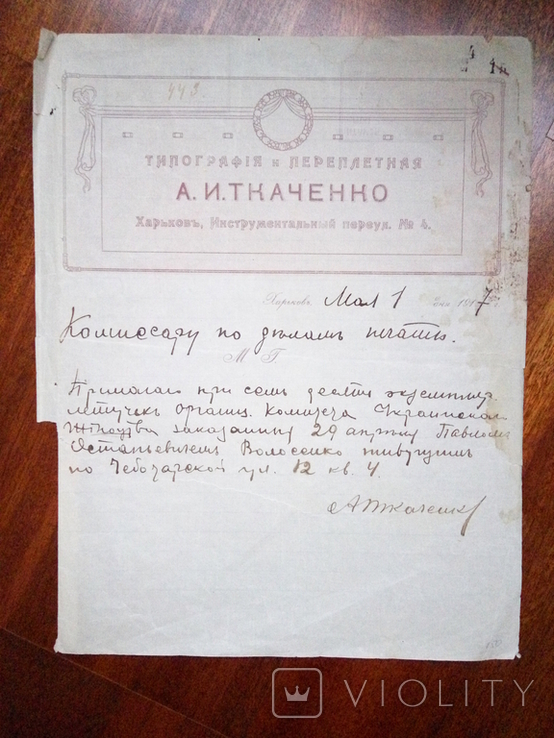 443.
ТИПОГРАФІЯ и ПЕРЕПЛЕТНАЯ
А. И. ТКАЧЕНКО
Харьковъ, Инструментальный переул. № 4.
Харьковъ, Мая 1 дня 1917 г.
Комиссару по дѣламъ печати.
М. Г.
Прилагаю при семъ десять экземпляр
летучекъ Организ. Комитета Украинскаго
заказанных 29 апрѣля Павломъ
Остапьевичемъ Волосенко живущимъ
по Чеботарской ул. 12 кв. 4.
А Ткаченко
VIOLITY